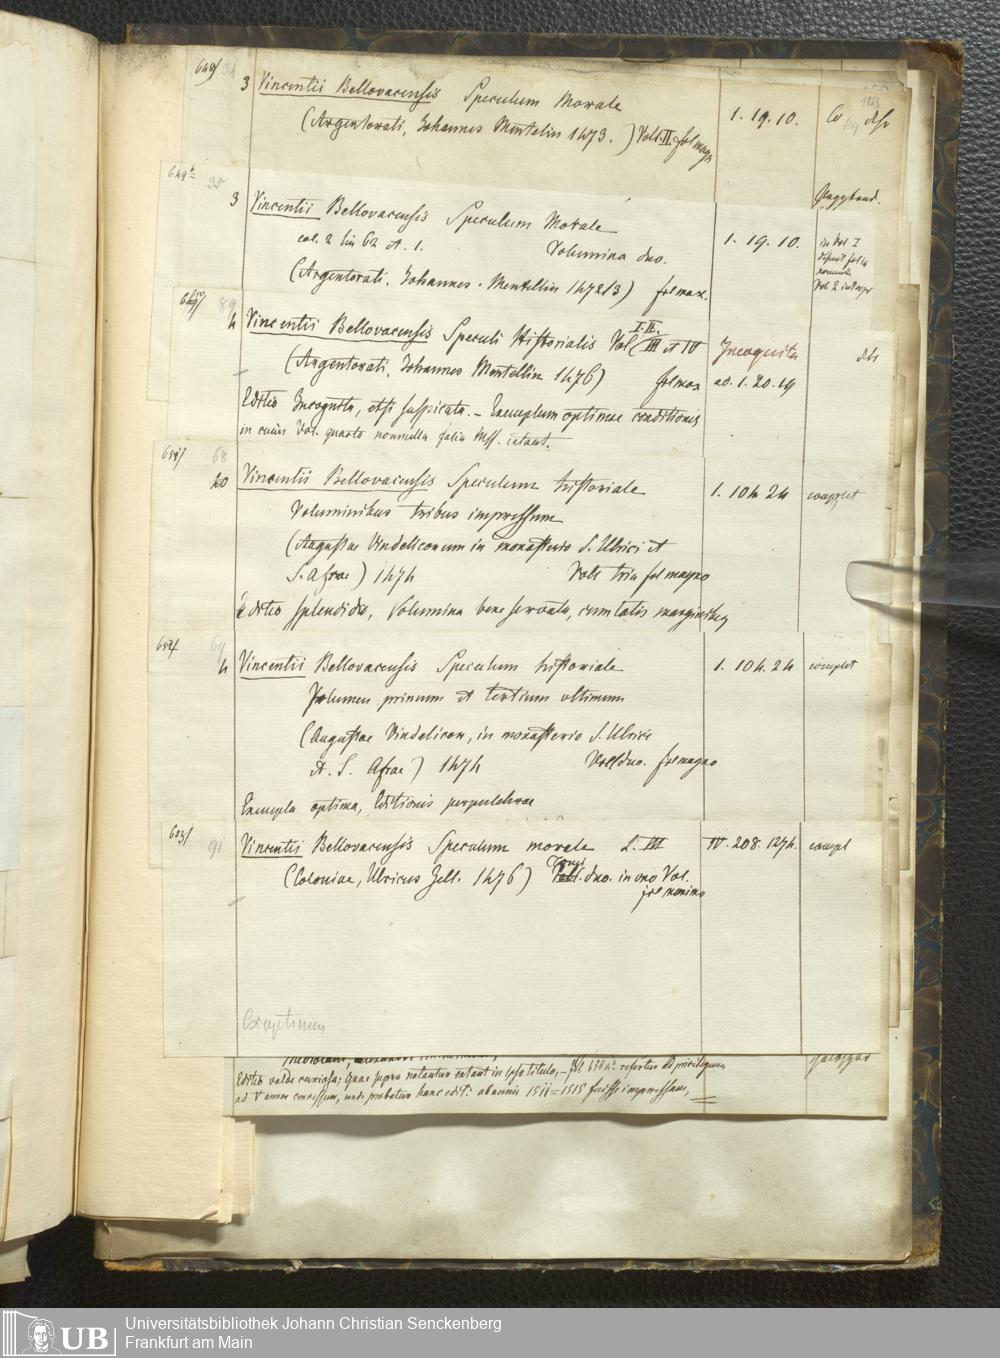 648/ 34
3 Vincentii Bellovacensis Speculum Morale 1. 19. 10.
(Argentorati, Johannes Mentelin 1473.) Voll. II. fol magn
649 35
3 Vincentii Bellovacensis Speculum Morale 1. 19. 10.
col. 2 lin 62 et 1. Volumina duo.
(Argentorati. Johannes. Mentellin 1472/3) fol max.
in Vol I
650/ 89
4 Vincentii Bellovacensis Speculi Historialis Vol I. II. III et IV Incognita
(Argentorati, Johannes Mentellin 1476) fol max ad. 1. 20. 19
Editio Incognita, etsi suspicata. – Exemplum optimae conditionis
in cuius Vol. quarto nonnulla folia Mss. extant.
651/ 68
20 Vincentii Bellovacensis Speculum historiale 1. 104. 24 complet
Voluminibus tribus impressum
(Augustae Vindelicorum in monasterio S. Ulrici et
S. Afrae) 1474 Voll tria fol magno
Editio splendida, Volumina bene servata, cum latis marginibus
652/ 69
4 Vincentii Bellovacensis Speculum historiale 1. 104. 24 complet
Volumen primum et tertium ultimum
(Augustae Vindelicor, in monasterio S. Ulrici
et. S. Afrae) 1474 Voll duo. fol magno
Exempla optima, Editionis perpulchrae
653/ 91
Vincentii Bellovacensis Speculum morale L. III IV. 208. 1274. compl
(Coloniae, Ulricus Zell. 1476) Tomi duo. in uno Vol.
fol maximo
Editio valde curiosa; quae supra notantur extant in ipso titulo, –
ad V annos concessum, unde probatur hanc edit: ab annis 1511 = 1515 fuisse impressam,
Universitätsbibliothek Johann Christian Senckenberg
Frankfurt am Main
UB